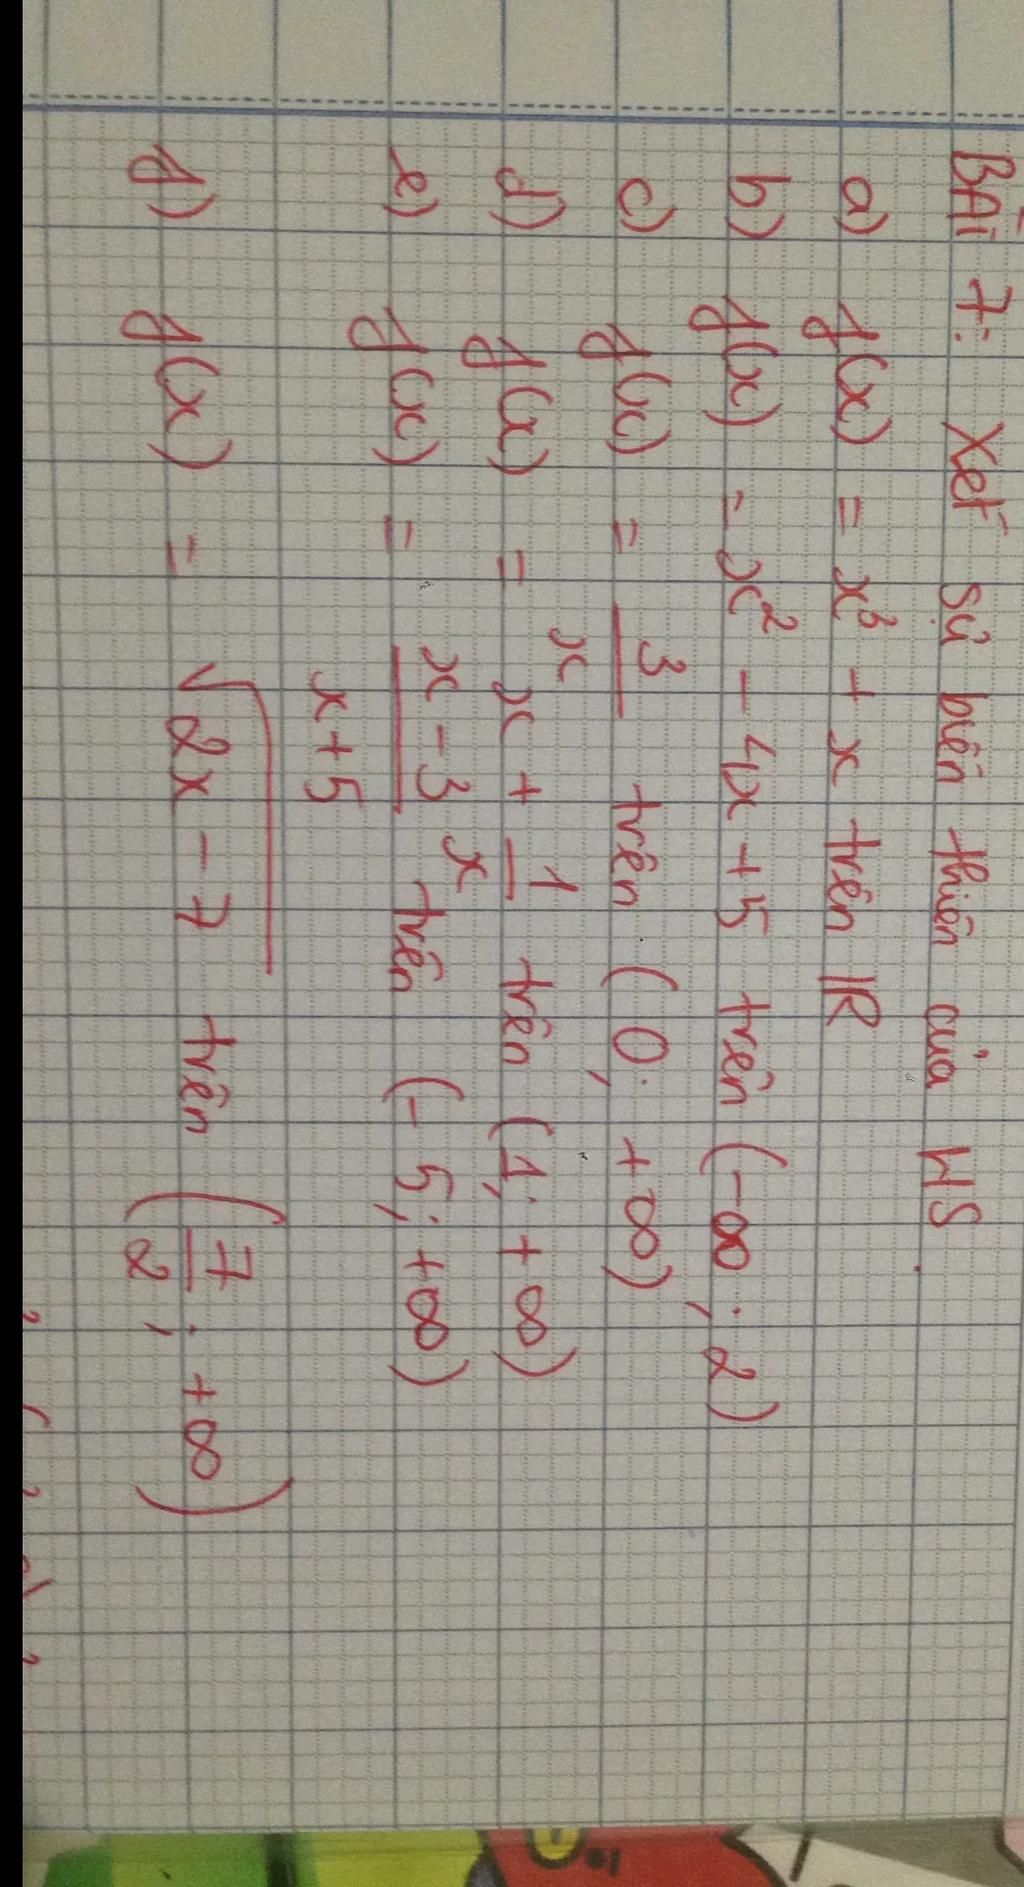 BÀI 7: Xét sự biến thiên của HS.
a) f(x) = x³ + x trên ℝ
b) f(x) = x² - 4x + 5 trên (-∞; 2)
c) f(x) = 3/x trên (0; +∞)
d) f(x) = x + 1/x trên (1; +∞)
e) f(x) = (x - 3)/(x + 5) trên (-5; +∞)
f) f(x) = √(2x - 7) trên (7/2; +∞)